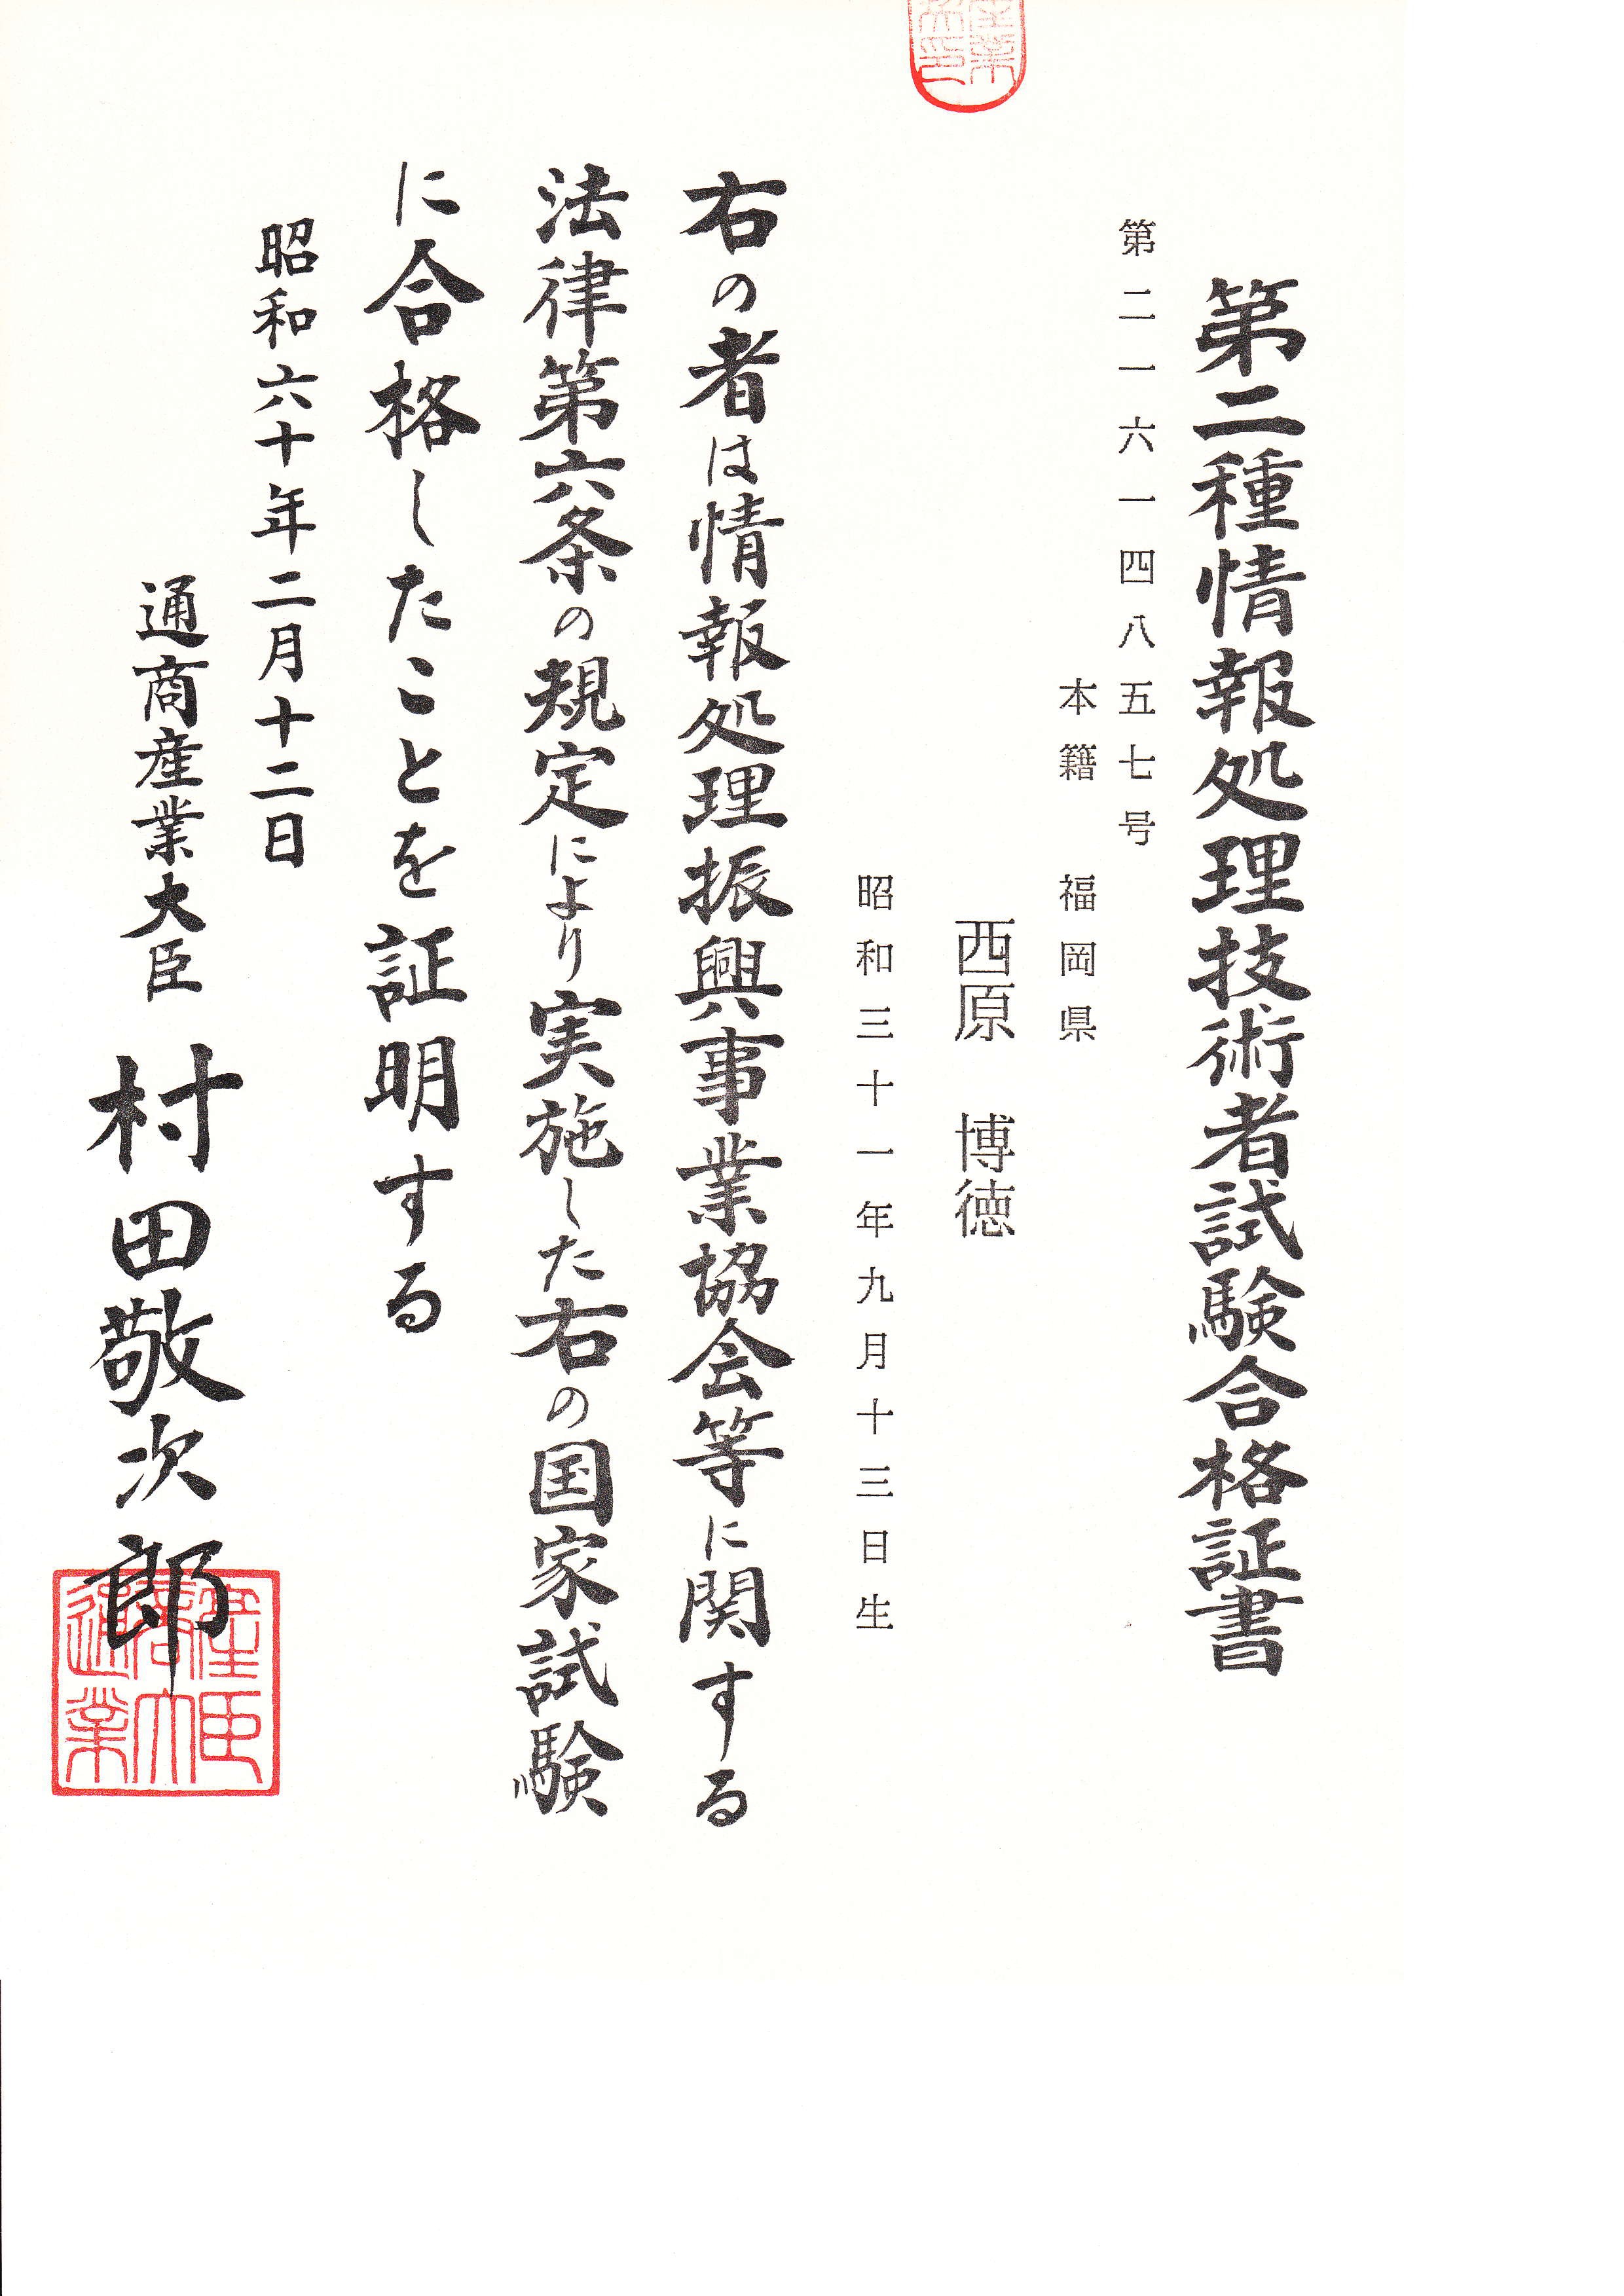 第二種情報処理技術者試験合格証書
第二一六一四八五七号
本籍 福岡県
西原 博徳
昭和三十一年九月十三日生
右の者は情報処理振興事業協会等に関する
法律第六条の規定により実施した右の国家試験
に合格したことを証明する
昭和六十年二月十二日
通商産業大臣 村田敬次郎